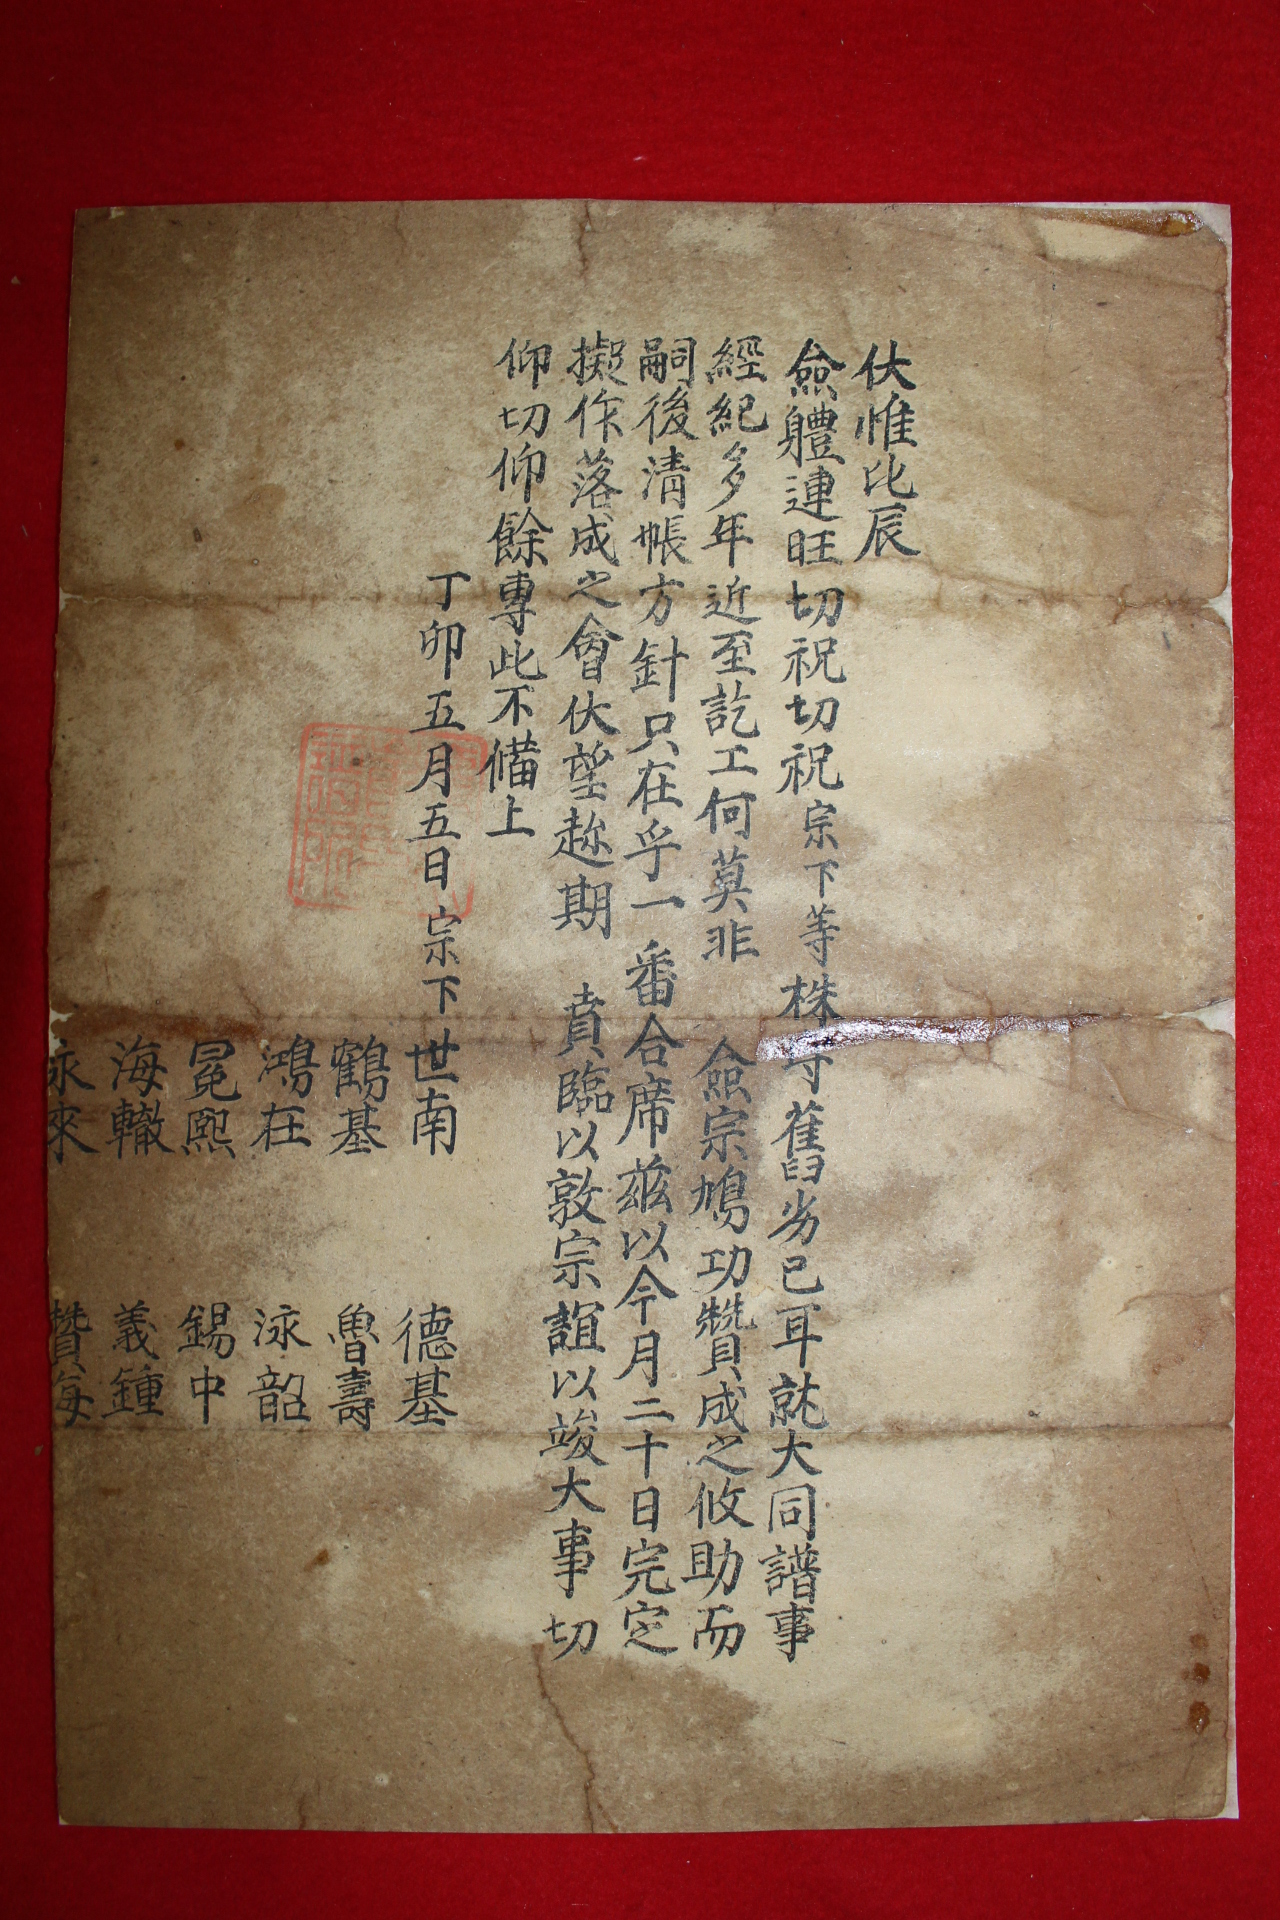 伏惟比辰
僉軆連旺切祝切祝宗下等株守舊劣已耳就大同譜事
經紀多年近至訖工何莫非 僉宗鳩功贊成之攸助而
嗣後淸帳方針只在乎一番合席茲以今月二十日完定
擬作落成之會伏望趂期 賁臨以敦宗誼以竣大事切
仰切仰餘專此不備上
丁卯五月五日 宗下 世南 德基
鶴基 魯壽
鴻在 泳韶
冕熙 錫中
海轍 義鍾
永來 贊海